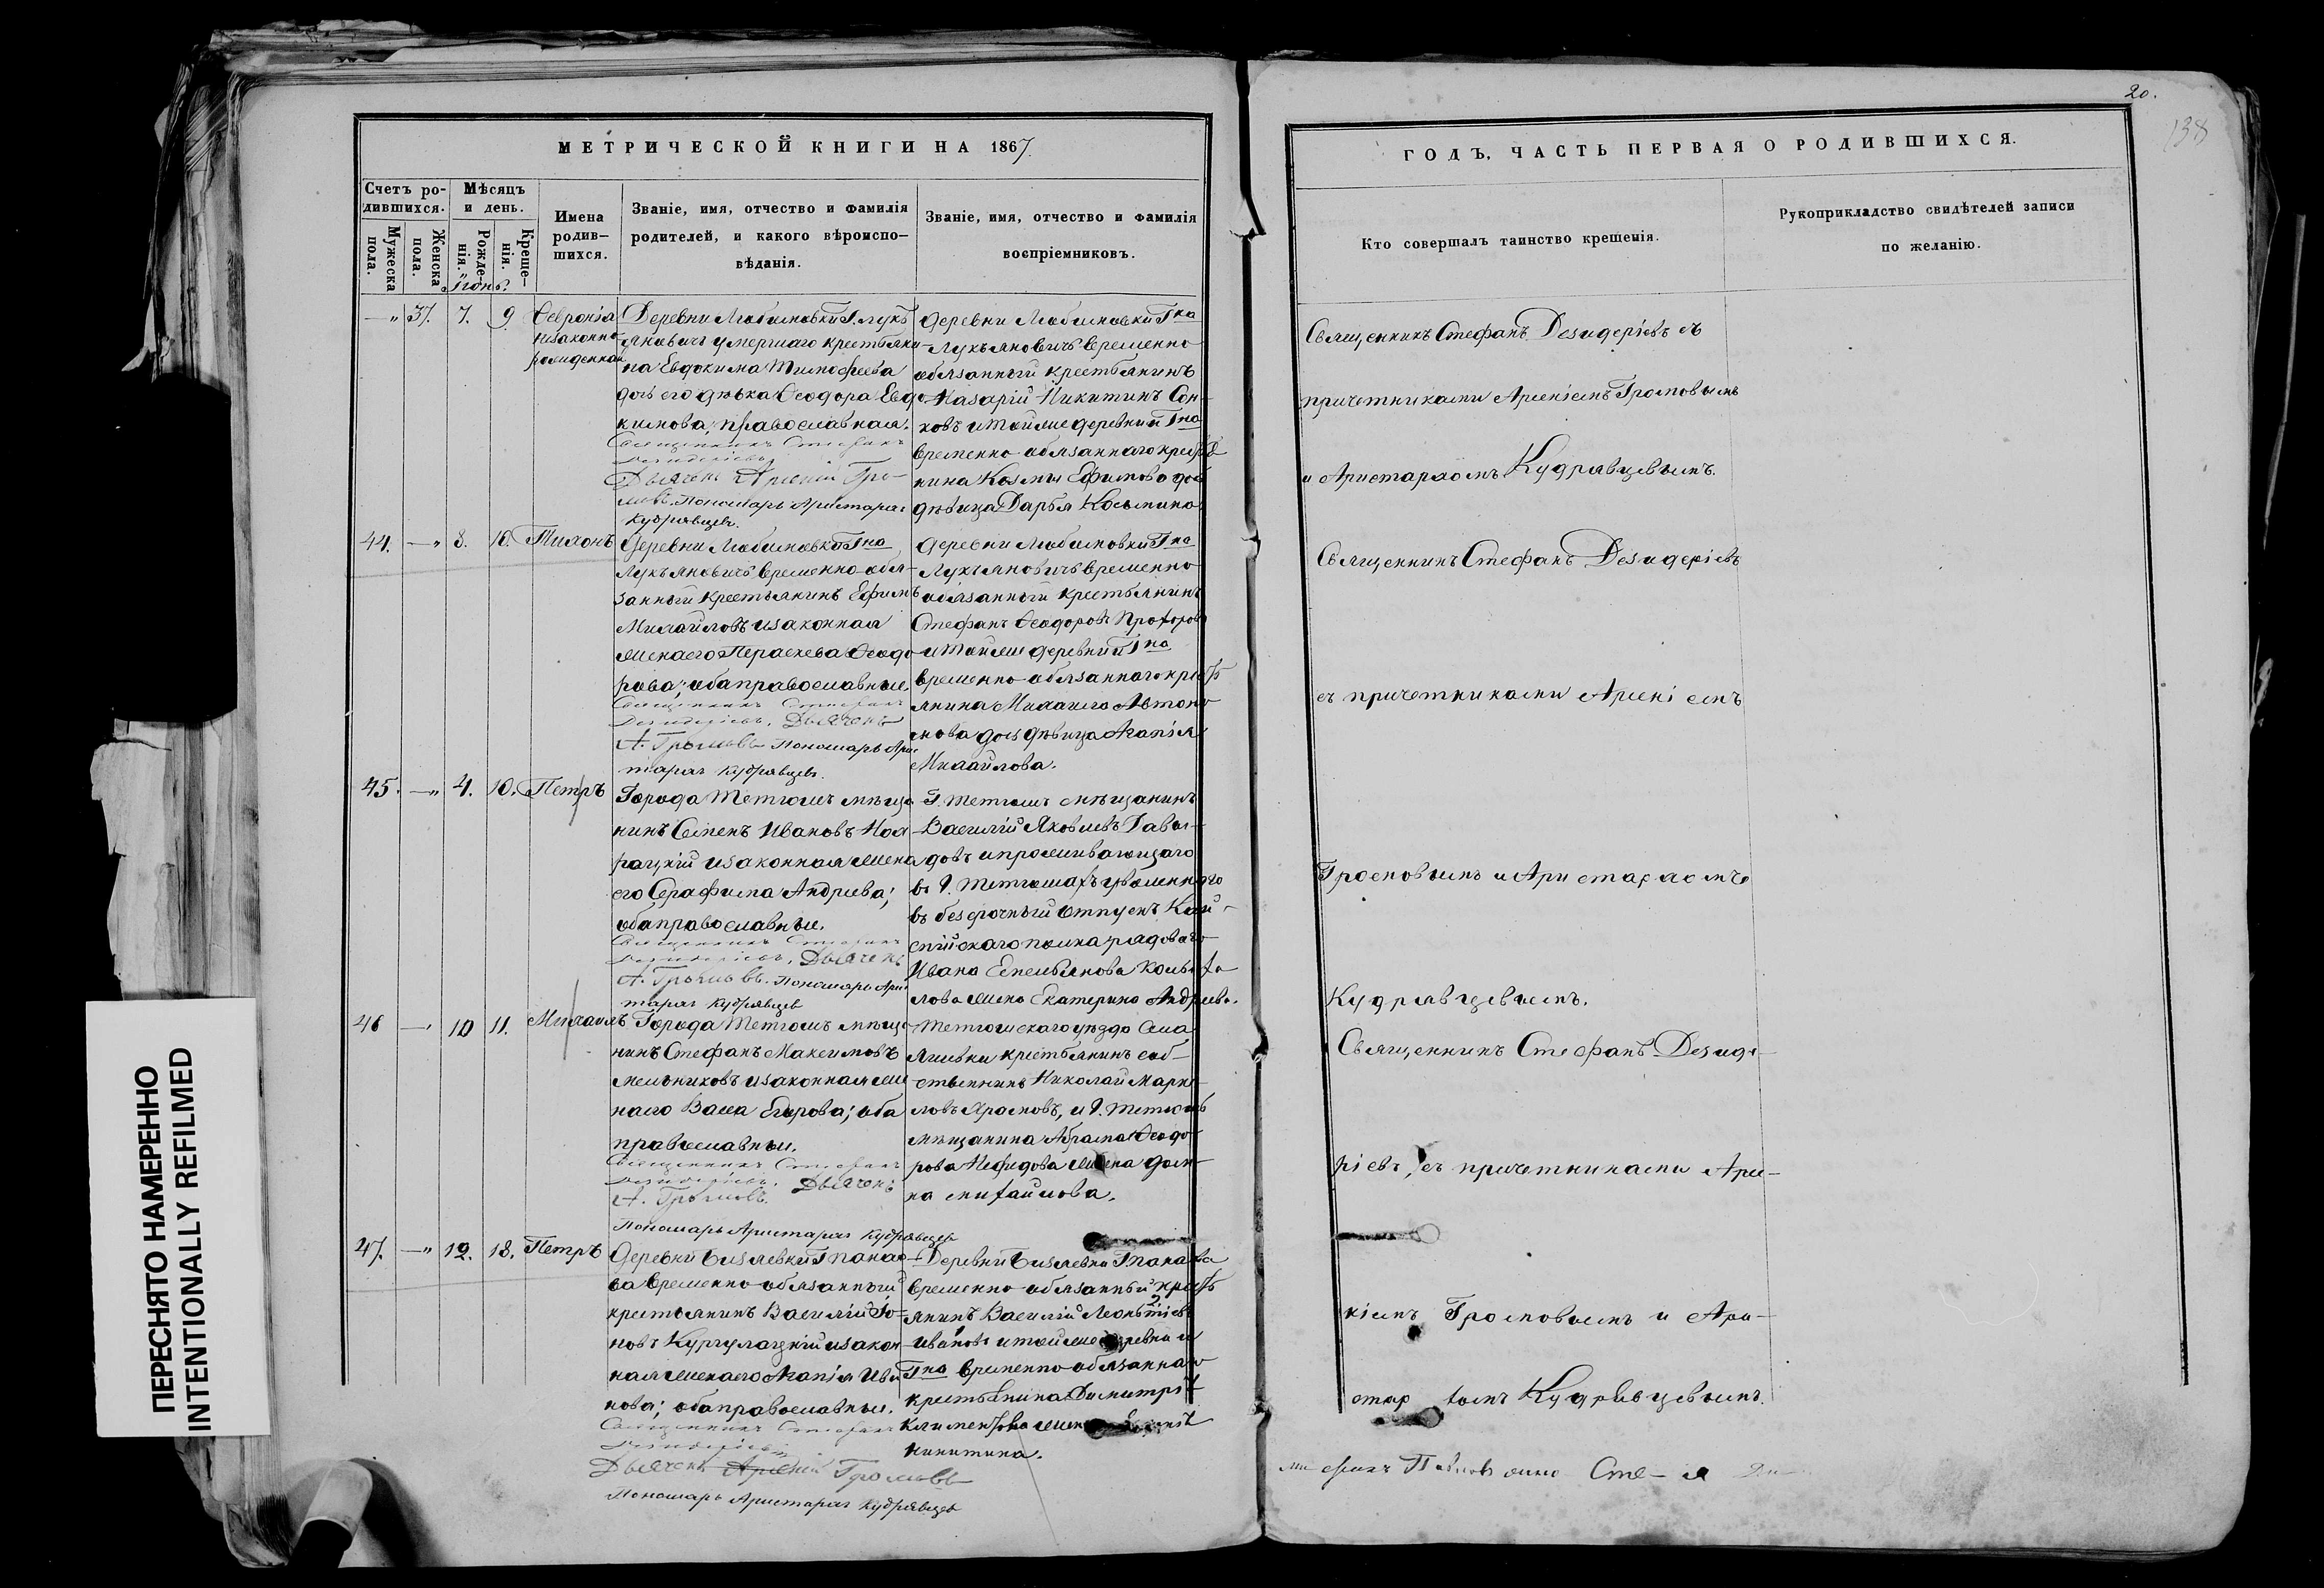 20.
138
МЕТРИЧЕСКОЙ КНИГИ НА 1867.
Счетъ ро-
дившихся.
Мужеска
пола.
Женска
пола.
Мѣсяцъ
и день.
Рожде-
нія.
Креще-
нія.
Имена
родив-
шихся.
Званіе, имя, отчество и фамилія
родителей, и какого вѣроиспо-
вѣданія.
Званіе, имя, отчество и фамилія
воспріемниковъ.
Іюнь.
— " 37. 7. 9. Ѳевронія
незаконно-
рожденная
Деревни Любимовки Г. Лукь
яновичъ умершаго крестьяни-
на Евдокима Тимофеева
дочь его дѣвка Ѳеодора Евдо
кимова, православная.
Священникъ Стефанъ
Дезидеріевъ
Дьячекъ Арсеній Гро-
мовъ. Пономарь Аристархъ
Кудрявцевъ.
Деревни Любимовки Гна
Лукьяновичъ временно
обязанный крестьянинъ
Назарій Никитинъ Сон-
ковъ и тойже деревни и Гна
временно обязаннаго кресть
нина Козмы Ефимова дочь
дѣвица Дарья Косьмина
44. — " 8. 10. Тихонъ
Деревни Любимовки Гна
Лукьяновичъ временно обя-
занный крестьянинъ Ефимъ
Михайловъ и законная
жена его Параскева Ѳеодо
рова; оба православные.
Священникъ Стефанъ
Дезидеріевъ. Дьячекъ
А. Громовъ Пономарь Арис
тархъ Кудрявцевъ.
Деревни Любимовки Гна
Лукьяновичъ временно
обязанный крестьянинъ
Стефанъ Ѳеодоровъ Прохоров
и тойже деревни и Гна
временно обязаннаго кресть
янина Михаила Автоно
мова дочь дѣвица Агапія
Михайлова.
45. — " 4. 10. Петръ
Города Тетюшъ мѣща
нинъ Семенъ Ивановъ
и законная жена
его Серафима Андреева;
оба православные.
Священникъ Стефанъ
Дезидеріевъ. Дьячекъ
А. Громовъ. Пономарь Арис
тархъ Кудрявцевъ
Г. Тетюшъ мѣщанинъ
Василій Яковлевъ Давы-
довъ и проживающаго
въ Г. Тетюшахъ уволеннаго
въ безсрочный отпускъ
полка рядоваго
Ивана Емельянова
жена Екатерина Андреева.
46 — " 10 11. Михаилъ
Города Тетюшъ мѣща
нинъ Стефанъ Максимовъ
Мельниковъ и законная же
на его Васса Егорова; оба
православные.
Священникъ Стефанъ
Дезидеріевъ. Дьячекъ
А. Громовъ.
Пономарь Аристархъ Кудрявцевъ
Тетюшскаго уѣзда
крестьянинъ соб-
ственникъ Николай Марке
ловъ и Г. Тетюшъ
мѣщанина Абрама Ѳеодо
рова Нефедова жена Дом-
на Михайлова.
47. — " 12. 18. Петръ
Деревни Бизяевки Г Панае
ва временно обязанный
крестьянинъ Василій
и закон
ная жена его Агапія Ива
нова; оба православные.
Священникъ Стефанъ
Дезидеріевъ
Дьячекъ Арсеній Громовъ
Пономарь Аристархъ Кудрявцевъ
Деревни Бизяевки Г. Панаева
временно обязанный кресть
янинъ Василій Леонтіевъ
Ивановъ и тойже деревни и
Гна временно обязаннаго
крестьянина Димитрія
Климентова жена
Никитина.
ГОДЪ, ЧАСТЬ ПЕРВАЯ О РОДИВШИХСЯ.
Кто совершалъ таинство крещенія.
Рукоприкладство свидѣтелей записи
по желанію.
Священникъ Стефанъ Дезидеріевъ съ
причетниками Арсеніемъ Громовымъ
и Аристархомъ Кудрявцевымъ.
Священникъ Стефанъ Дезидеріевъ
съ причетниками Арсеніемъ
Громовымъ и Аристархомъ
Кудрявцевымъ.
Священникъ Стефанъ Дезиде-
ріевъ, съ причетниками Арсе-
ніемъ Громовымъ и Ари-
стархомъ Кудрявцевымъ.
ПЕРЕСНЯТО НАМЕРЕННО
INTENTIONALLY REFILMED